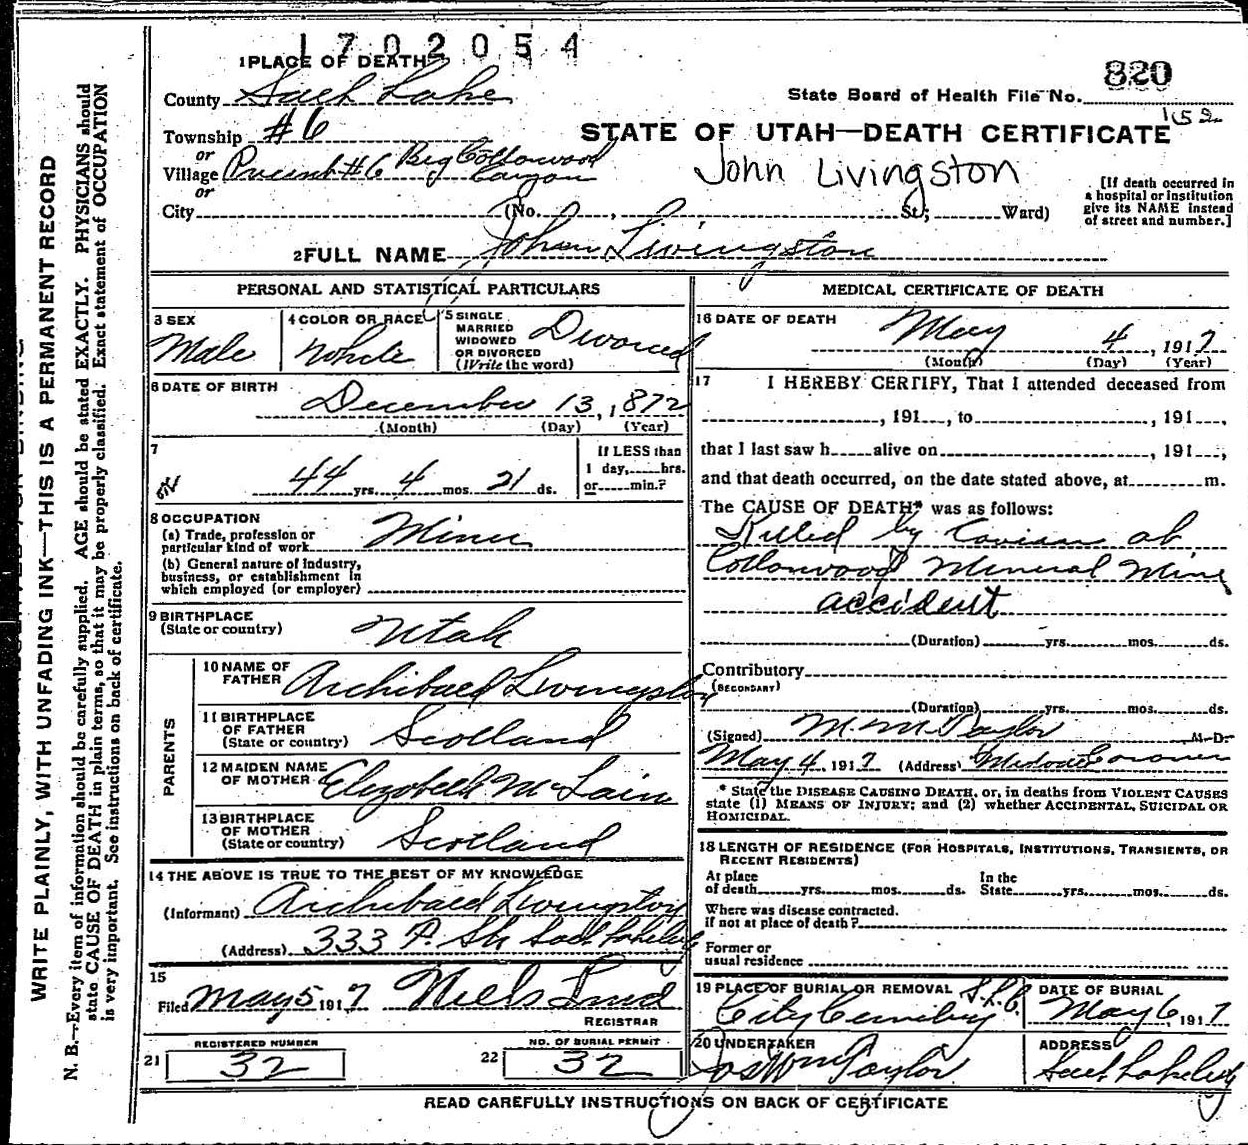 1702054
1 PLACE OF DEATH
820
County Salt Lake
State Board of Health File No.
Township #6
152
STATE OF UTAH—DEATH CERTIFICATE
or
Village Precinct #6 Big Cottonwood Canyon
John Livingston
or
[If death occurred in
a hospital or institution
give its NAME instead
of street and number.]
City (No. , St.; Ward)
2 FULL NAME Johan Livingston
PERSONAL AND STATISTICAL PARTICULARS
3 SEX
Male
4 COLOR OR RACE
White
5 SINGLE
MARRIED
WIDOWED
OR DIVORCED
(Write the word)
Divorced
6 DATE OF BIRTH
December 13, 1872
(Month) (Day) (Year)
7
44 yrs. 4 mos. 21 ds.
If LESS than
1 day, hrs.
or min.?
8 OCCUPATION
(a) Trade, profession or
particular kind of work Miner
(b) General nature of industry,
business, or establishment in
which employed (or employer)
9 BIRTHPLACE
(State or country) Utah
PARENTS
10 NAME OF
FATHER Archibald Livingston
11 BIRTHPLACE
OF FATHER
(State or country) Scotland
12 MAIDEN NAME
OF MOTHER Elizabeth McLain
13 BIRTHPLACE
OF MOTHER
(State or country) Scotland
14 THE ABOVE IS TRUE TO THE BEST OF MY KNOWLEDGE
(Informant) Archibald Livingston
(Address) 333 P. St. Salt Lake City
15
Filed May 5 1917 Niels Lind
REGISTRAR
21 REGISTERED NUMBER
32
22 NO. OF BURIAL PERMIT
32
MEDICAL CERTIFICATE OF DEATH
16 DATE OF DEATH
May 4, 1917
(Month) (Day) (Year)
17 I HEREBY CERTIFY, That I attended deceased from
, 191 , to , 191 ,
that I last saw h alive on , 191 ,
and that death occurred, on the date stated above, at m.
The CAUSE OF DEATH* was as follows:
Killed by at
Cottonwood Mineral Mine
accident
(Duration) yrs. mos. ds.
Contributory
(SECONDARY)
(Duration) yrs. mos. ds.
(Signed) M. M. Taylor M.D.
May 4, 1917 (Address) Midvale Coroner
* State the DISEASE CAUSING DEATH, or, in deaths from VIOLENT CAUSES
state (1) MEANS OF INJURY; and (2) whether ACCIDENTAL, SUICIDAL OR
HOMICIDAL.
18 LENGTH OF RESIDENCE (FOR HOSPITALS, INSTITUTIONS, TRANSIENTS, OR
RECENT RESIDENTS)
At place
of death yrs. mos. ds.
In the
State yrs. mos. ds.
Where was disease contracted.
if not at place of death?
Former or
usual residence
19 PLACE OF BURIAL OR REMOVAL S.L.C.
City Cemetery
DATE OF BURIAL
May 6, 1917
20 UNDERTAKER
Jos Wm Taylor
ADDRESS
Salt Lake City
READ CAREFULLY INSTRUCTIONS ON BACK OF CERTIFICATE
WRITE PLAINLY, WITH UNFADING INK—THIS IS A PERMANENT RECORD
N. B.—Every item of information should be carefully supplied. AGE should be stated EXACTLY. PHYSICIANS should
state CAUSE OF DEATH in plain terms, so that it may be properly classified. Exact statement of OCCUPATION
is very important. See instructions on back of certificate.